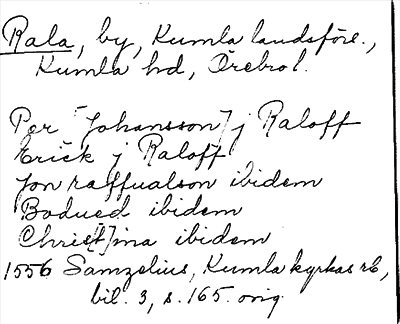 Rala, by, Kumla landsförs.,
Kumla hd, Örebro l.
Per [Johansson] j Raloff
Erick j Raloff
Jon raffualson ibidem
Bodued ibidem
Chris[t]ina ibidem
1556 Samzelius, Kumla kyrkas rb,
bil. 3, s. 165. orig.